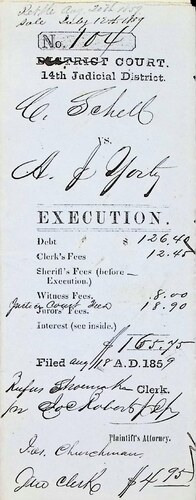 Retble Aug 20th 1859
Sale July 12th 1859
No. 104
DISTRICT COURT.
14th Judicial District.
C. Schell
VS.
A. J Yorty
EXECUTION.
Debt $ 126.40
Clerk's Fees 12.45
Sheriff's Fees (before
Execution.)
Witness Fees 8.00
Justice Court Fees
Juror's Fees. 18.90
Interest (see inside.)
$165.75
Filed Aug 18 A.D. 1859
Rufus Shoemaker Clerk.
pr Jos Roberts Jr Dp
Plaintiff's Attorney.
Jas. Churchman
Due Clerk $4.95